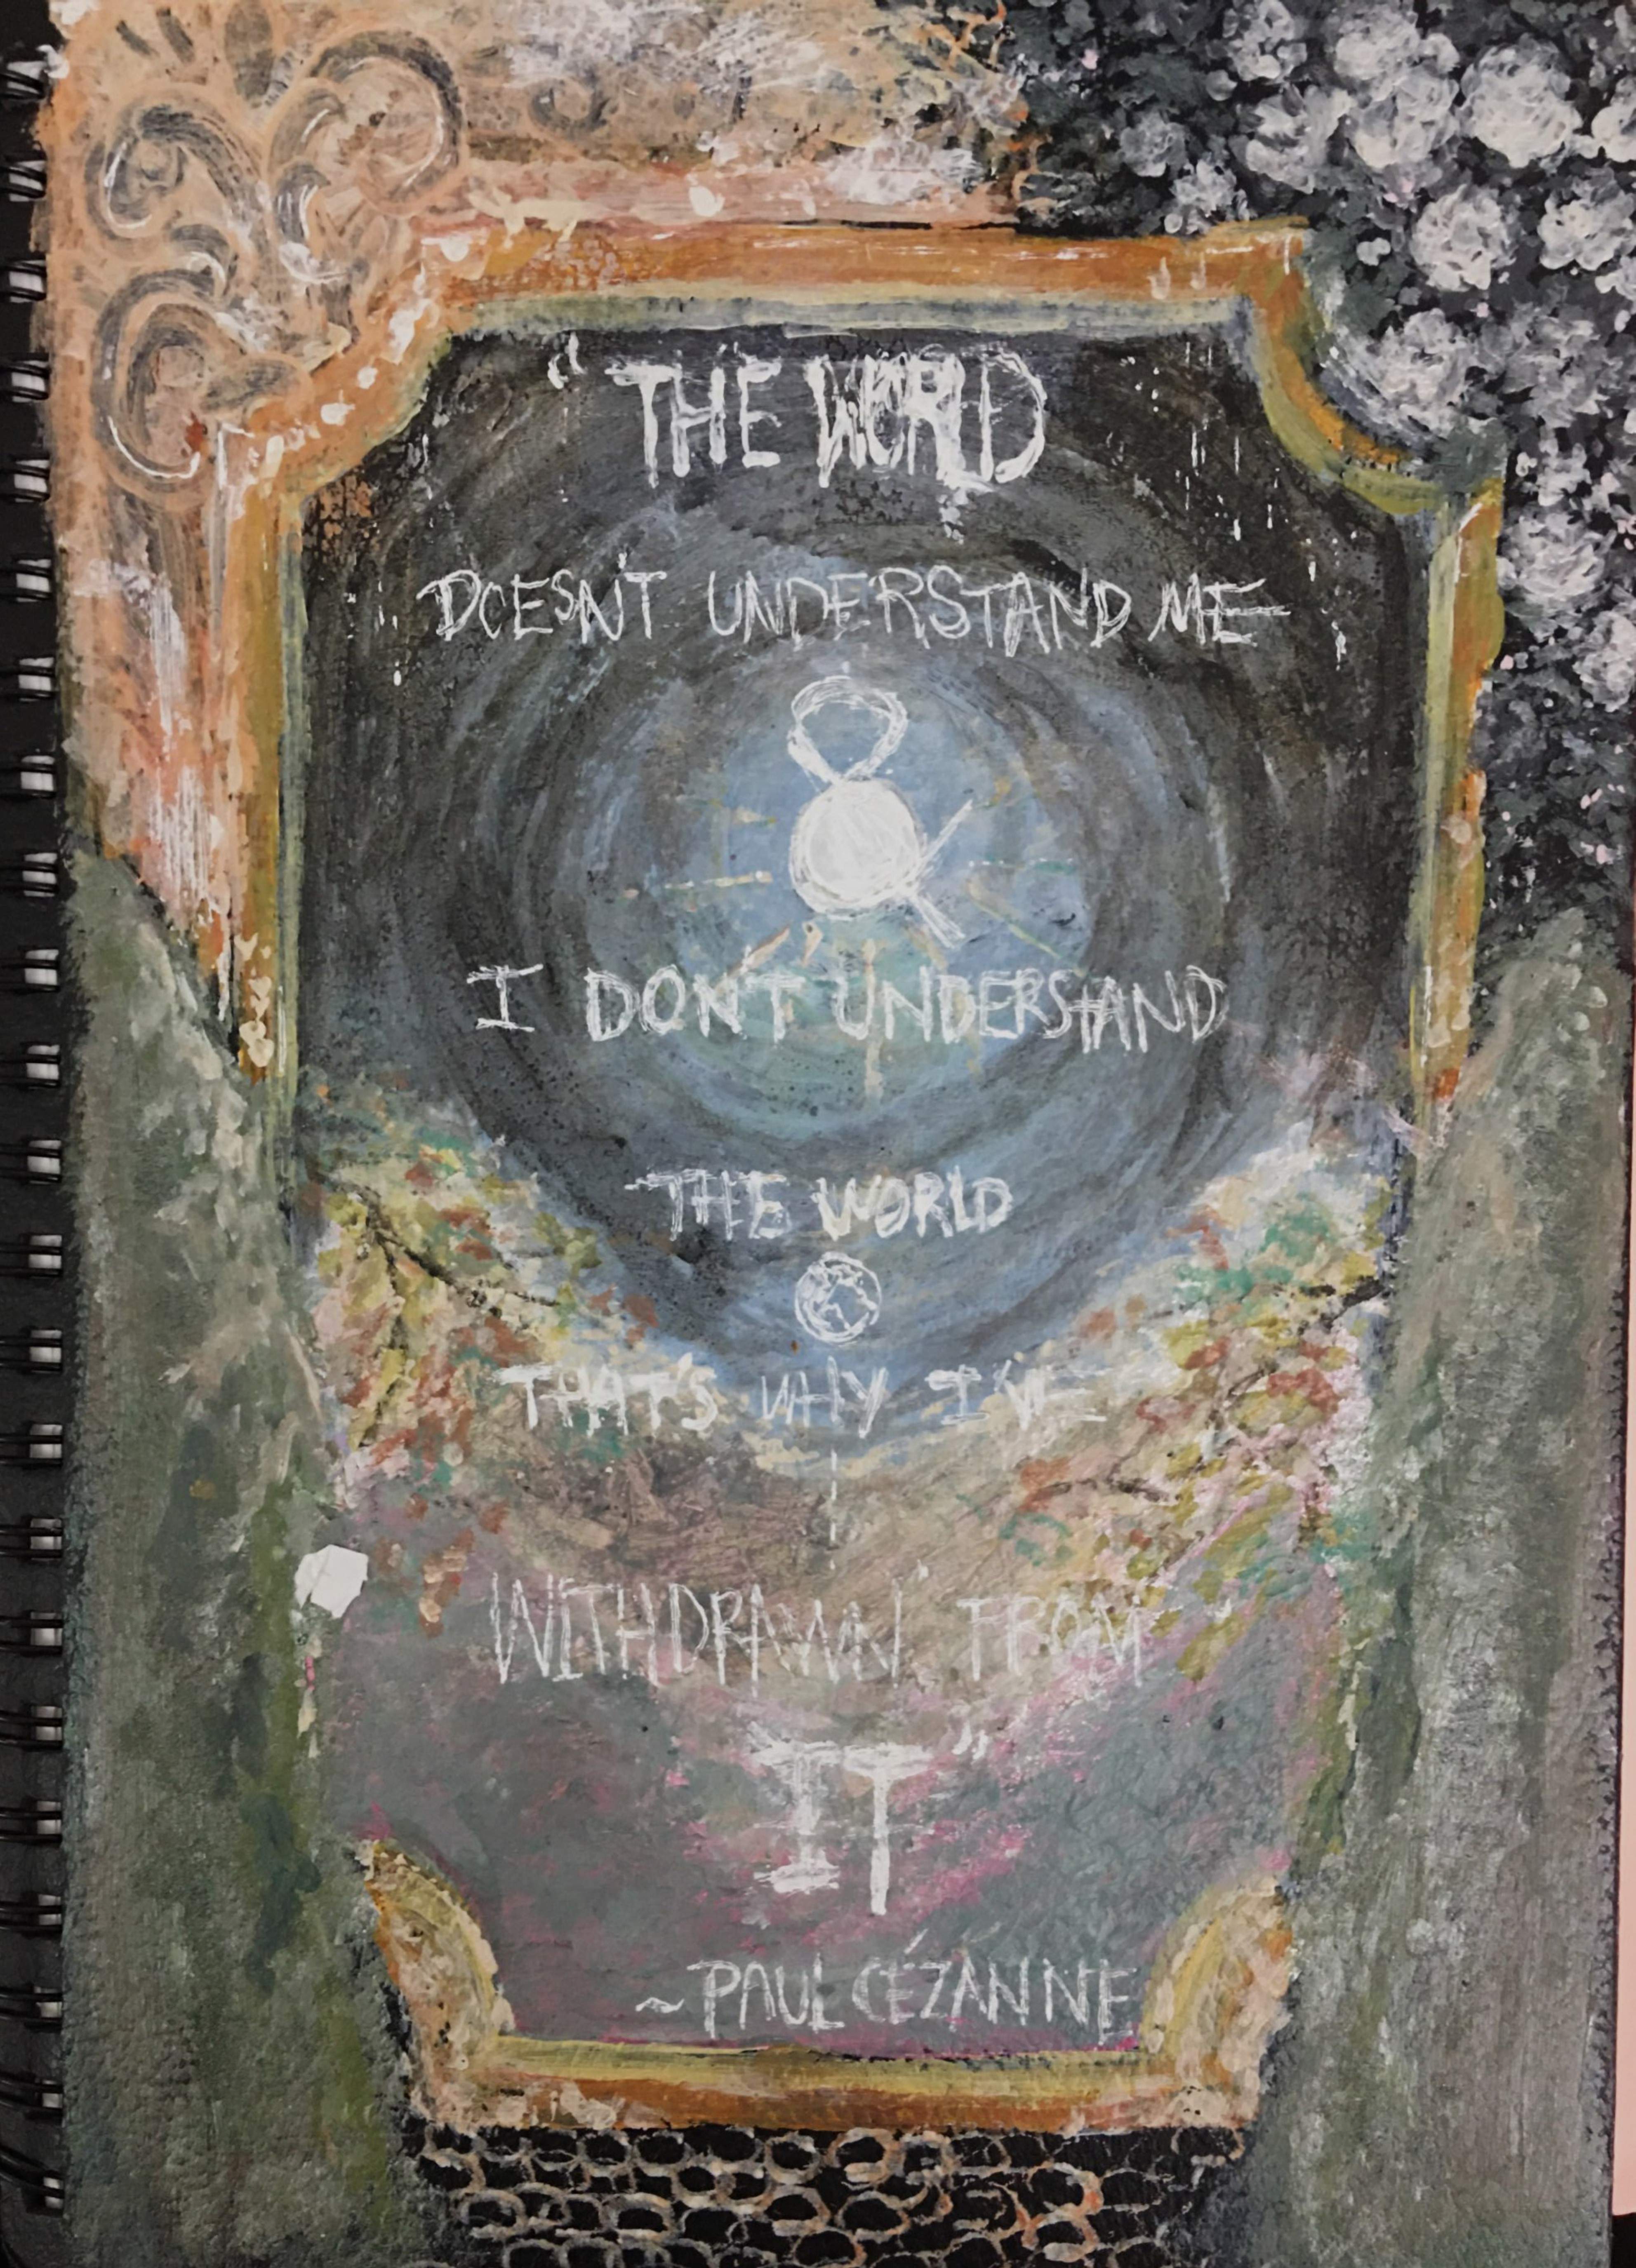 "THE WORLD
DOESN'T UNDERSTAND ME
&
I DON'T UNDERSTAND
THE WORLD
THAT'S WHY I'VE
WITHDRAWN FROM
IT"
~PAUL CÉZANNE